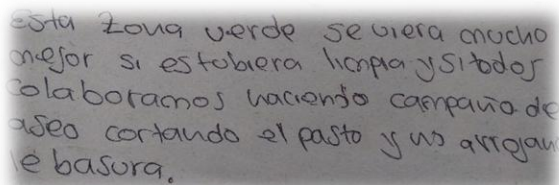 Esta zona verde se viera mucho
mejor si estubiera limpia y si todos
colaboramos haciendo campaña de
aseo cortando el pasto y no arrojan
le basura.